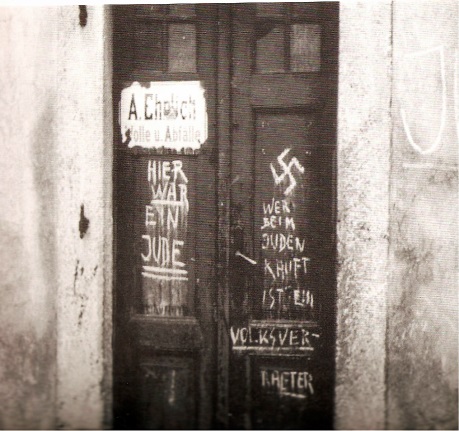 A. Ehrlich
Wolle u. Abfälle
HIER
WAR
EIN
JUDE
WER
BEIM
JUDEN
KAUFT
IST EIN
VOLKSVER-
RAETER
J